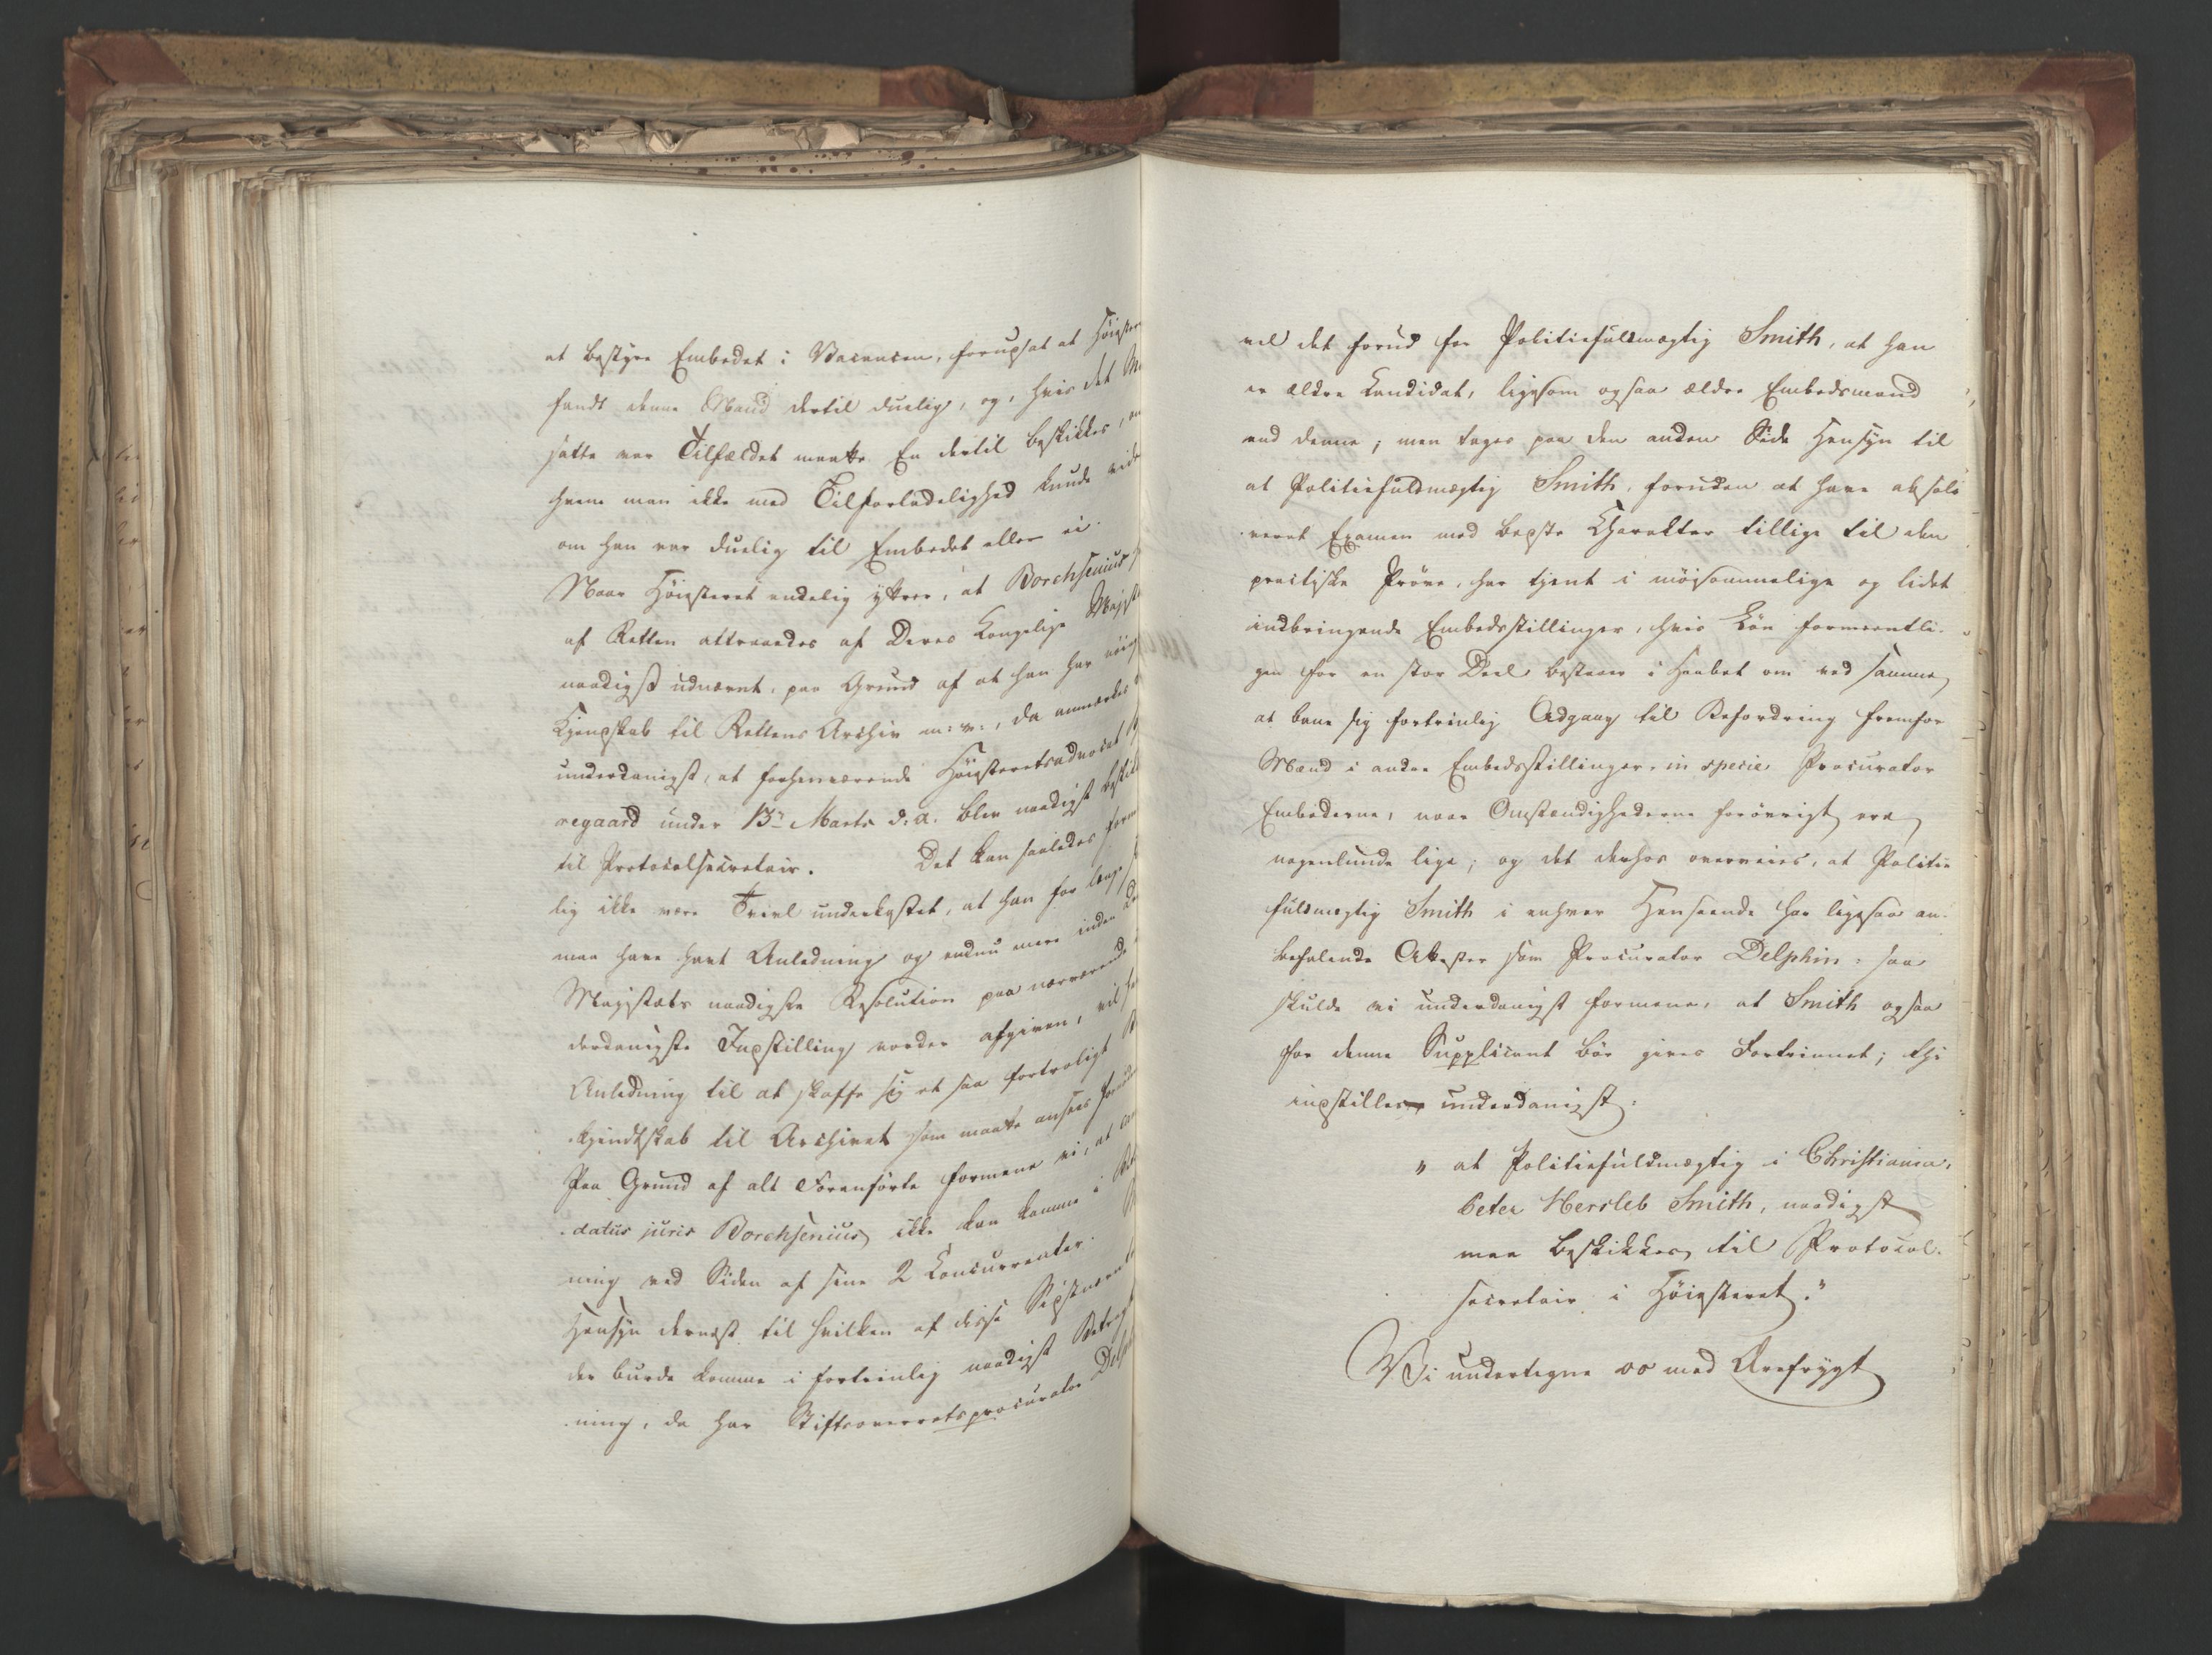 at bestyre Embedet i Vacancen, forudsat at Høieste
fandt denne Mand dertil duelig, og, hvis det M
satte var Tilfældet maatte En dertil beskikkes, om
hvem man ikke med Tilforladelighed kunde vide
om han var duelig til Embedet eller ei.
Naar Høiesteret endelig yttrer, at Borchsenius
af Retten attraaedes af Deres Kongelige Majestæ
naadigst udnævnt, paa Grund af at han har nøie
Kjendskab til Rettens Archiv m: v:, da anmærkes
underdanigst, at forhenværende Høiesteretsadvocat
regaard under 13de Marts d: A. blev naadigst beskik
til Protocolsecretair. Det kan saaledes form
lig ikke være Tvivl underkastet, at han for længe
maa have havt Anledning og endnu mere inden De
Majestæts naadigste Resolution paa nærværende
derdanigste Indstilling vorder afgiven, vil ha
Anledning til at skaffe sig et saa fortroligt
Kjendtskab til Archivet som maatte ansees fornød
Paa Grund af alt Foranførte formene vi, at can
datus juris Borchsenius ikke kan komme i Bet
ning ved Siden af sine 2 Concurrenter.
Hensyn dernæst til hvilken af disse Sidstnævnt
der burde komme i fortrinlig naadigst Betragt
ning, da har Stiftsoverretsprocurator Delph
vel det forud for Politiefuldmægtig Smith, at han
er ældre Candidat, ligesom ogsaa ældre Embedsmand
end denne; men tages paa den anden Side Hensyn til
at Politiefuldmægtig Smith, foruden at have absol
veret Examen med bedste Charakter tillige til den
practiske Prøve, har tjent i møisommelige og lidet
indbringende Embedsstillinger, hvis Løn formeentli-
gen for en stor Deel bestaaer i Haabet om ved samme
at bane sig fortrinlig Adgang til Befordring fremfor
Mænd i andre Embedsstillinger, in specie Procurator
Embederne, naar Omstændighederne forøvrigt ere
nogenlunde lige; og det derhos overveies, at Politie
fuldmægtig Smith i enhver Henseende har ligesaa an-
befalende Attester som Procurator Delphin: saa
skulde vi underdanigst formene, at Smith ogsaa
for denne Supplicant bør gives Fortrinnet; thi
indstilles underdanigst:
" at Politiefuldmægtig i Christiania,
Peter Hersleb Smith, naadigst
maa beskikkes til Protocol-
secretair i Høiesteret."
Vi undertegne os med Ærefrygt